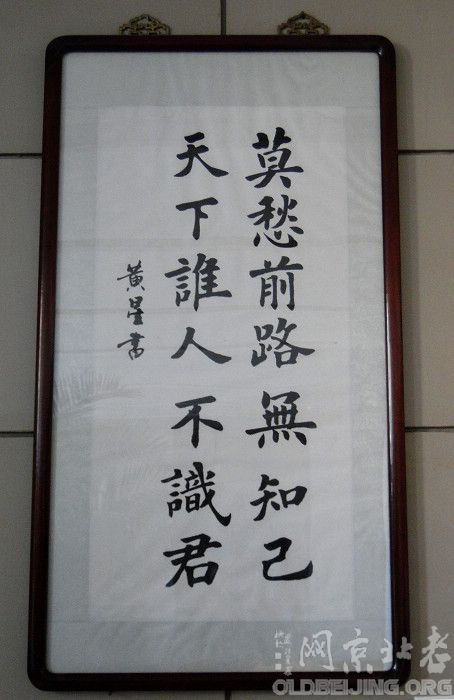 莫愁前路無知己
天下誰人不識君
黃星書
老北京网
OLDBEIJING.ORG